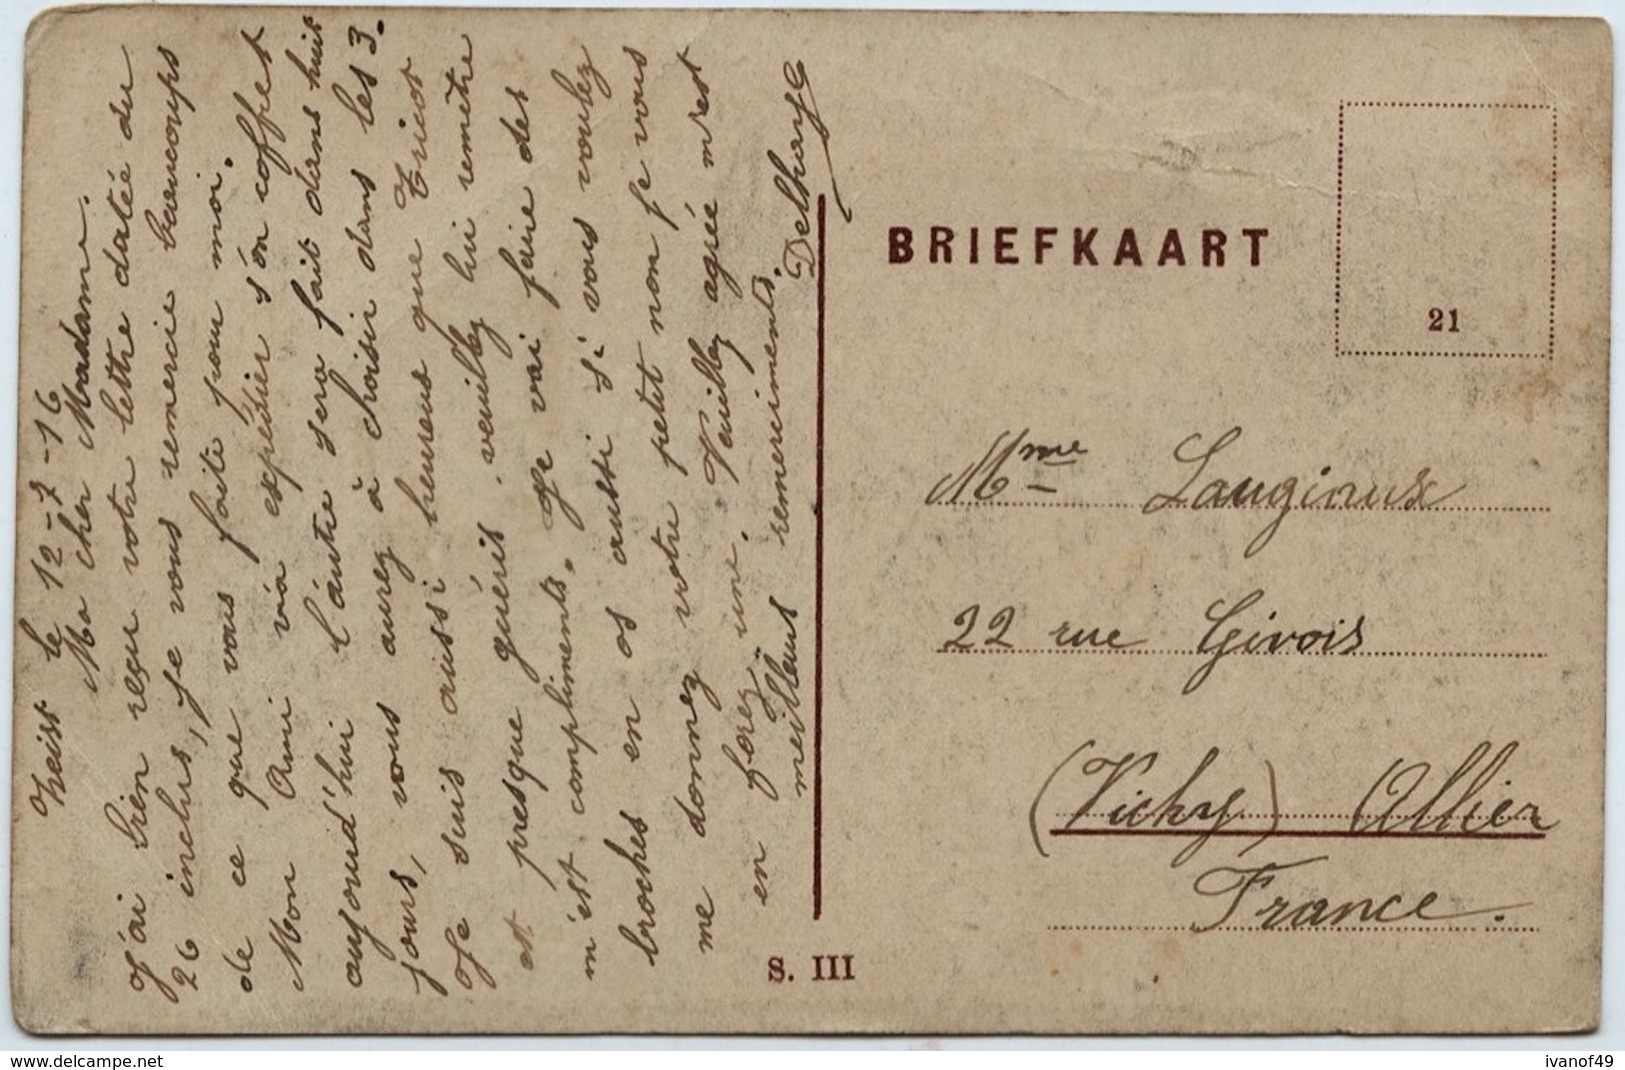 Zeist le 12-7-16
Ma cher Madame.
J'ai bien reçu votre lettre datée du
26 inclus, je vous remercie beaucoups
de ce que vous faite pour moi.
Mon Ami va expédier s'on coffret
aujourd'hui l'autre sera fait dans huit
jours, vous aurez à choisir dans les 3.
Je suis aussi heureus que Tricot
est presque guéris. veuillez lui remètre
m'est compliments. Je vai faire des
broches en os aussi si vous voulez
me donnez votre petit non je vous
en ferez une. Veuillez agrée m'est
meilleus remerciments.
Delhaye
BRIEFKAART
21
Mme Laugiaux
22 rue Givois
(Vichy) Allier
France.
S. III
delcampe.net
ivanof49